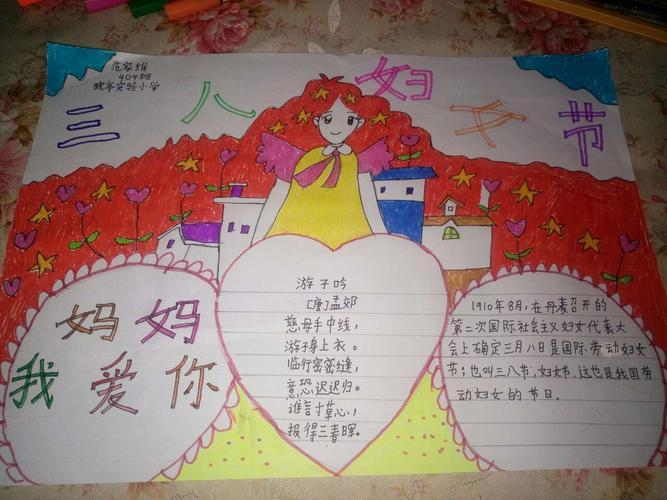 范家维
404班
猇亭实验小学
三八妇女节
妈妈
我爱你
游子吟
[唐]孟郊
慈母手中线，
游子身上衣。
临行密密缝，
意恐迟迟归。
谁言寸草心，
报得三春晖。
1910年8月，在丹麦召开的
第二次国际社会主义妇女代表大
会上确定三月八日是国际劳动妇女
节；也叫三八节，妇女节，这也是我国劳
动妇女的节日。